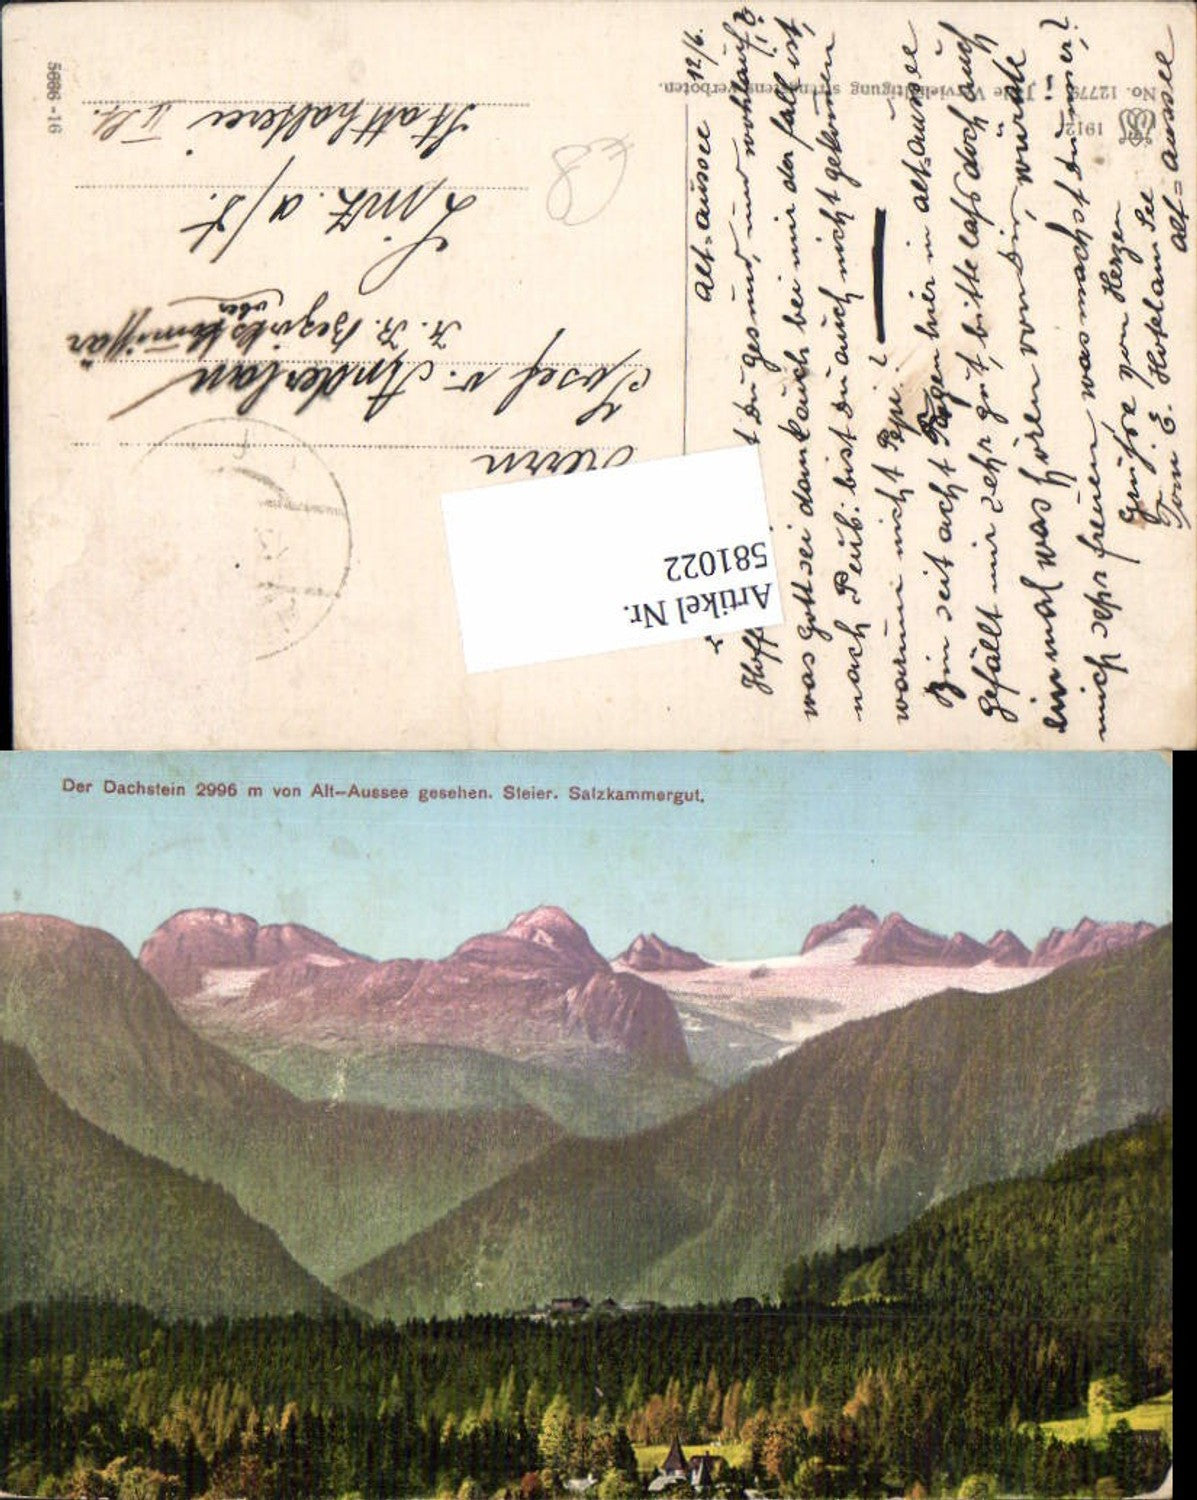 Alt-Aussee 12/6.
Du gesund, und wohlauf
was Gott sei dank auch bei mir der Fall ist,
nach bist Du auch nicht gekommen
warum nicht Pepi?
Bin seit acht Tagen hier in Alt-Aussee
gefällt mir sehr gut, bitte lass doch auch
einmal was hören von Dir, würde
mich sehr freuen, was machst Du immer,
Grüsse von Herzen
E. Hotel am See
Alt=Aussee
Herrn
Josef v. Anderlan
K. K. Bezirks
Linz a/D.
Statthalterei
No. 12779 Jede Vervielfältigung strengstens verboten.
1912
5686-16
€8
Artikel Nr.
581022
Der Dachstein 2996 m von Alt-Aussee gesehen. Steier. Salzkammergut.